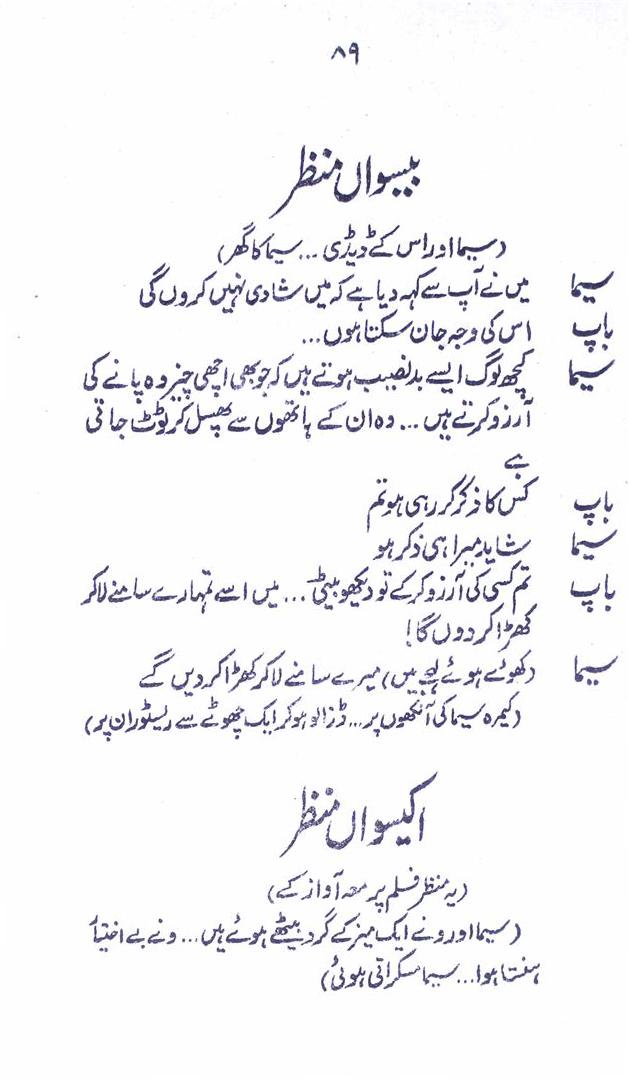 ۸۹
بیسواں منظر
(سیما اور اس کے ڈیڈی ... سیما کا گھر)
سیما میں نے آپ سے کہہ دیا ہے کہ میں شادی نہیں کروں گی
باپ اس کی وجہ جان سکتا ہوں...
سیما کچھ لوگ ایسے بدنصیب ہوتے ہیں کہ جو بھی اچھی چیز وہ پانے کی
آرزو کرتے ہیں ... وہ ان کے ہاتھوں سے پھسل کر ٹوٹ جاتی
ہے
باپ کس کا ذکر کر رہی ہو تم
سیما شاید میرا ہی ذکر ہو
باپ تم کسی کی آرزو کر کے تو دیکھو بیٹی ... میں اسے تمہارے سامنے لا کر
کھڑا کر دوں گا!
سیما (کھوئے ہوئے لہجے میں) میرے سامنے لا کر کھڑا کر دیں گے
(کیمرہ سیما کی آنکھوں پر ... ڈزالو ہو کر ایک چھوٹے سے ریسٹوران پر)
اکیسواں منظر
(یہ منظر فلم پر معہ آواز کے)
(سیما اور ونے ایک میز کے گرد بیٹھے ہوئے ہیں ... ونے بے اختیار
ہنستا ہوا ... سیما مسکراتی ہوئی)